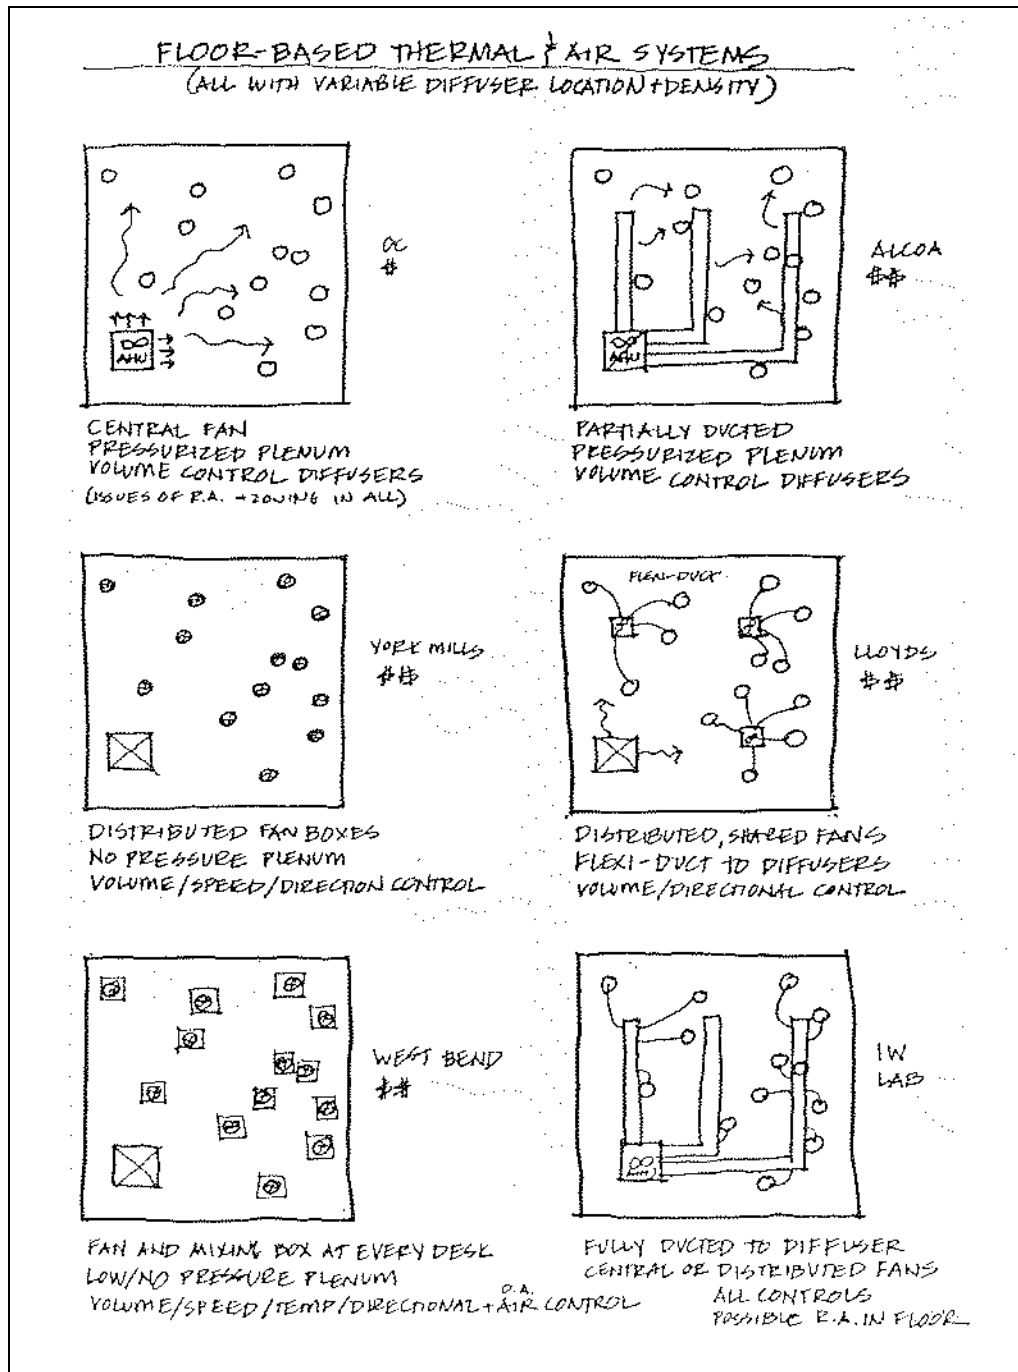 FLOOR-BASED THERMAL & AIR SYSTEMS
(ALL WITH VARIABLE DIFFUSER LOCATION + DENSITY)
AHU
OC
$
CENTRAL FAN
PRESSURIZED PLENUM
VOLUME CONTROL DIFFUSERS
(ISSUES OF R.A. + ZONING IN ALL)
AHU
ALCOA
$$
PARTIALLY DUCTED
PRESSURIZED PLENUM
VOLUME CONTROL DIFFUSERS
YORK MILLS
$$
DISTRIBUTED FAN BOXES
NO PRESSURE PLENUM
VOLUME/SPEED/DIRECTION CONTROL
FLEXI-DUCT
LLOYDS
$$
DISTRIBUTED, SHARED FANS
FLEXI-DUCT TO DIFFUSERS
VOLUME/DIRECTIONAL CONTROL
WEST BEND
$$
FAN AND MIXING BOX AT EVERY DESK
LOW/NO PRESSURE PLENUM
O.A.
VOLUME/SPEED/TEMP/DIRECTIONAL + AIR CONTROL
IW
LAB
FULLY DUCTED TO DIFFUSER
CENTRAL OR DISTRIBUTED FANS
ALL CONTROLS
POSSIBLE R.A. IN FLOOR